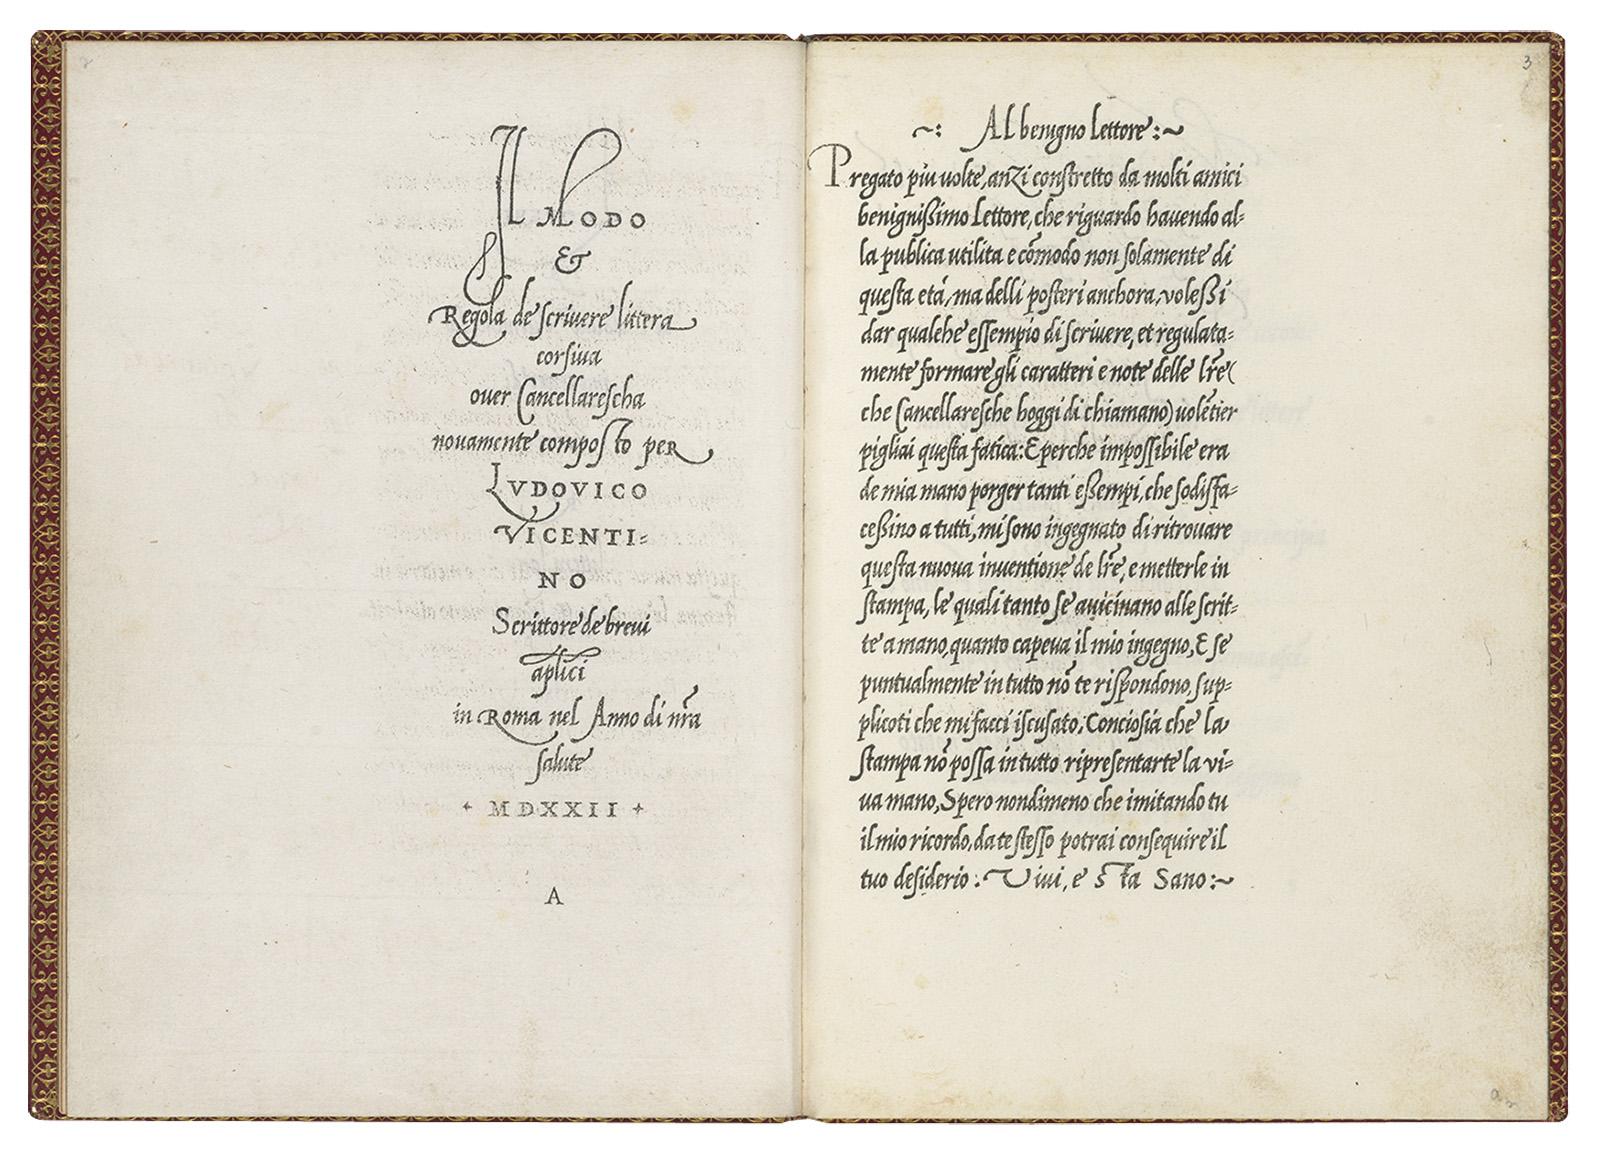 Il Modo
&
Regola de scrivere littera
corsiva
over Cancellarescha
novamente composto per
LVDOVICO
VICENTI=
NO
Scrittore de brevi
aplici
in Roma nel Anno di nr̃a
salute
+ MDXXII +
A
3
~: Al benigno Lettore :~
Pregato piu uolte, anzi constretto da molti amici
benignißimo Lettore, che riguardo havendo al-
la publica utilita e cõmodo non solamente di
questa etá, ma delli posteri anchora, voleßi
dar qualche essempio di scrivere, et regulata-
mente formare gli caratteri e note delle lr̃e (
che Cancellaresche hoggi di chiamano) uolẽtier
pigliai questa fatica: E perche impossibile era
de mia mano porger tanti eßempi, che sodisfa-
ceßino a tutti, mi sono ingegnato di ritrovare
questa nuova inventione de lr̃e, e metterle in
stampa, le quali tanto se avicinano alle scrit-
te a mano, quanto capeva il mio ingegno, E se
puntualmente in tutto nõ te rispondono, sup-
plicoti che mi facci iscusato, Conciosia che la
stampa nõ possa in tutto ripresentarte la vi-
va mano, Spero nondimeno che imitando tu
il mio ricordo, da te stesso potrai consequire il
tuo desiderio : Vivi, e sta Sano :~